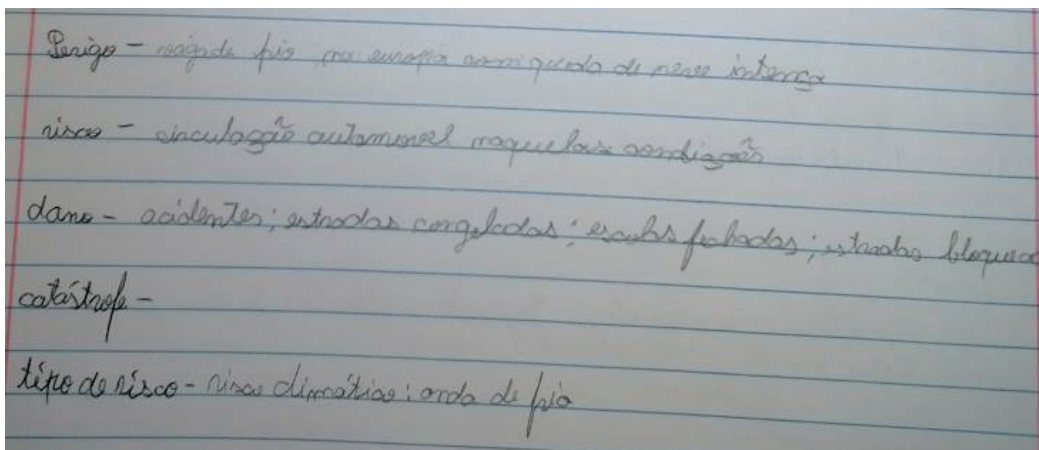 Perigo - vaga de frio na europa com queda de neve intensa
risco - circulação automovel naquelas condições
dano - acidentes; estradas congeladas; escolas fechadas; estradas bloquea
catástrofe -
tipo de risco - risco climático: onda de frio